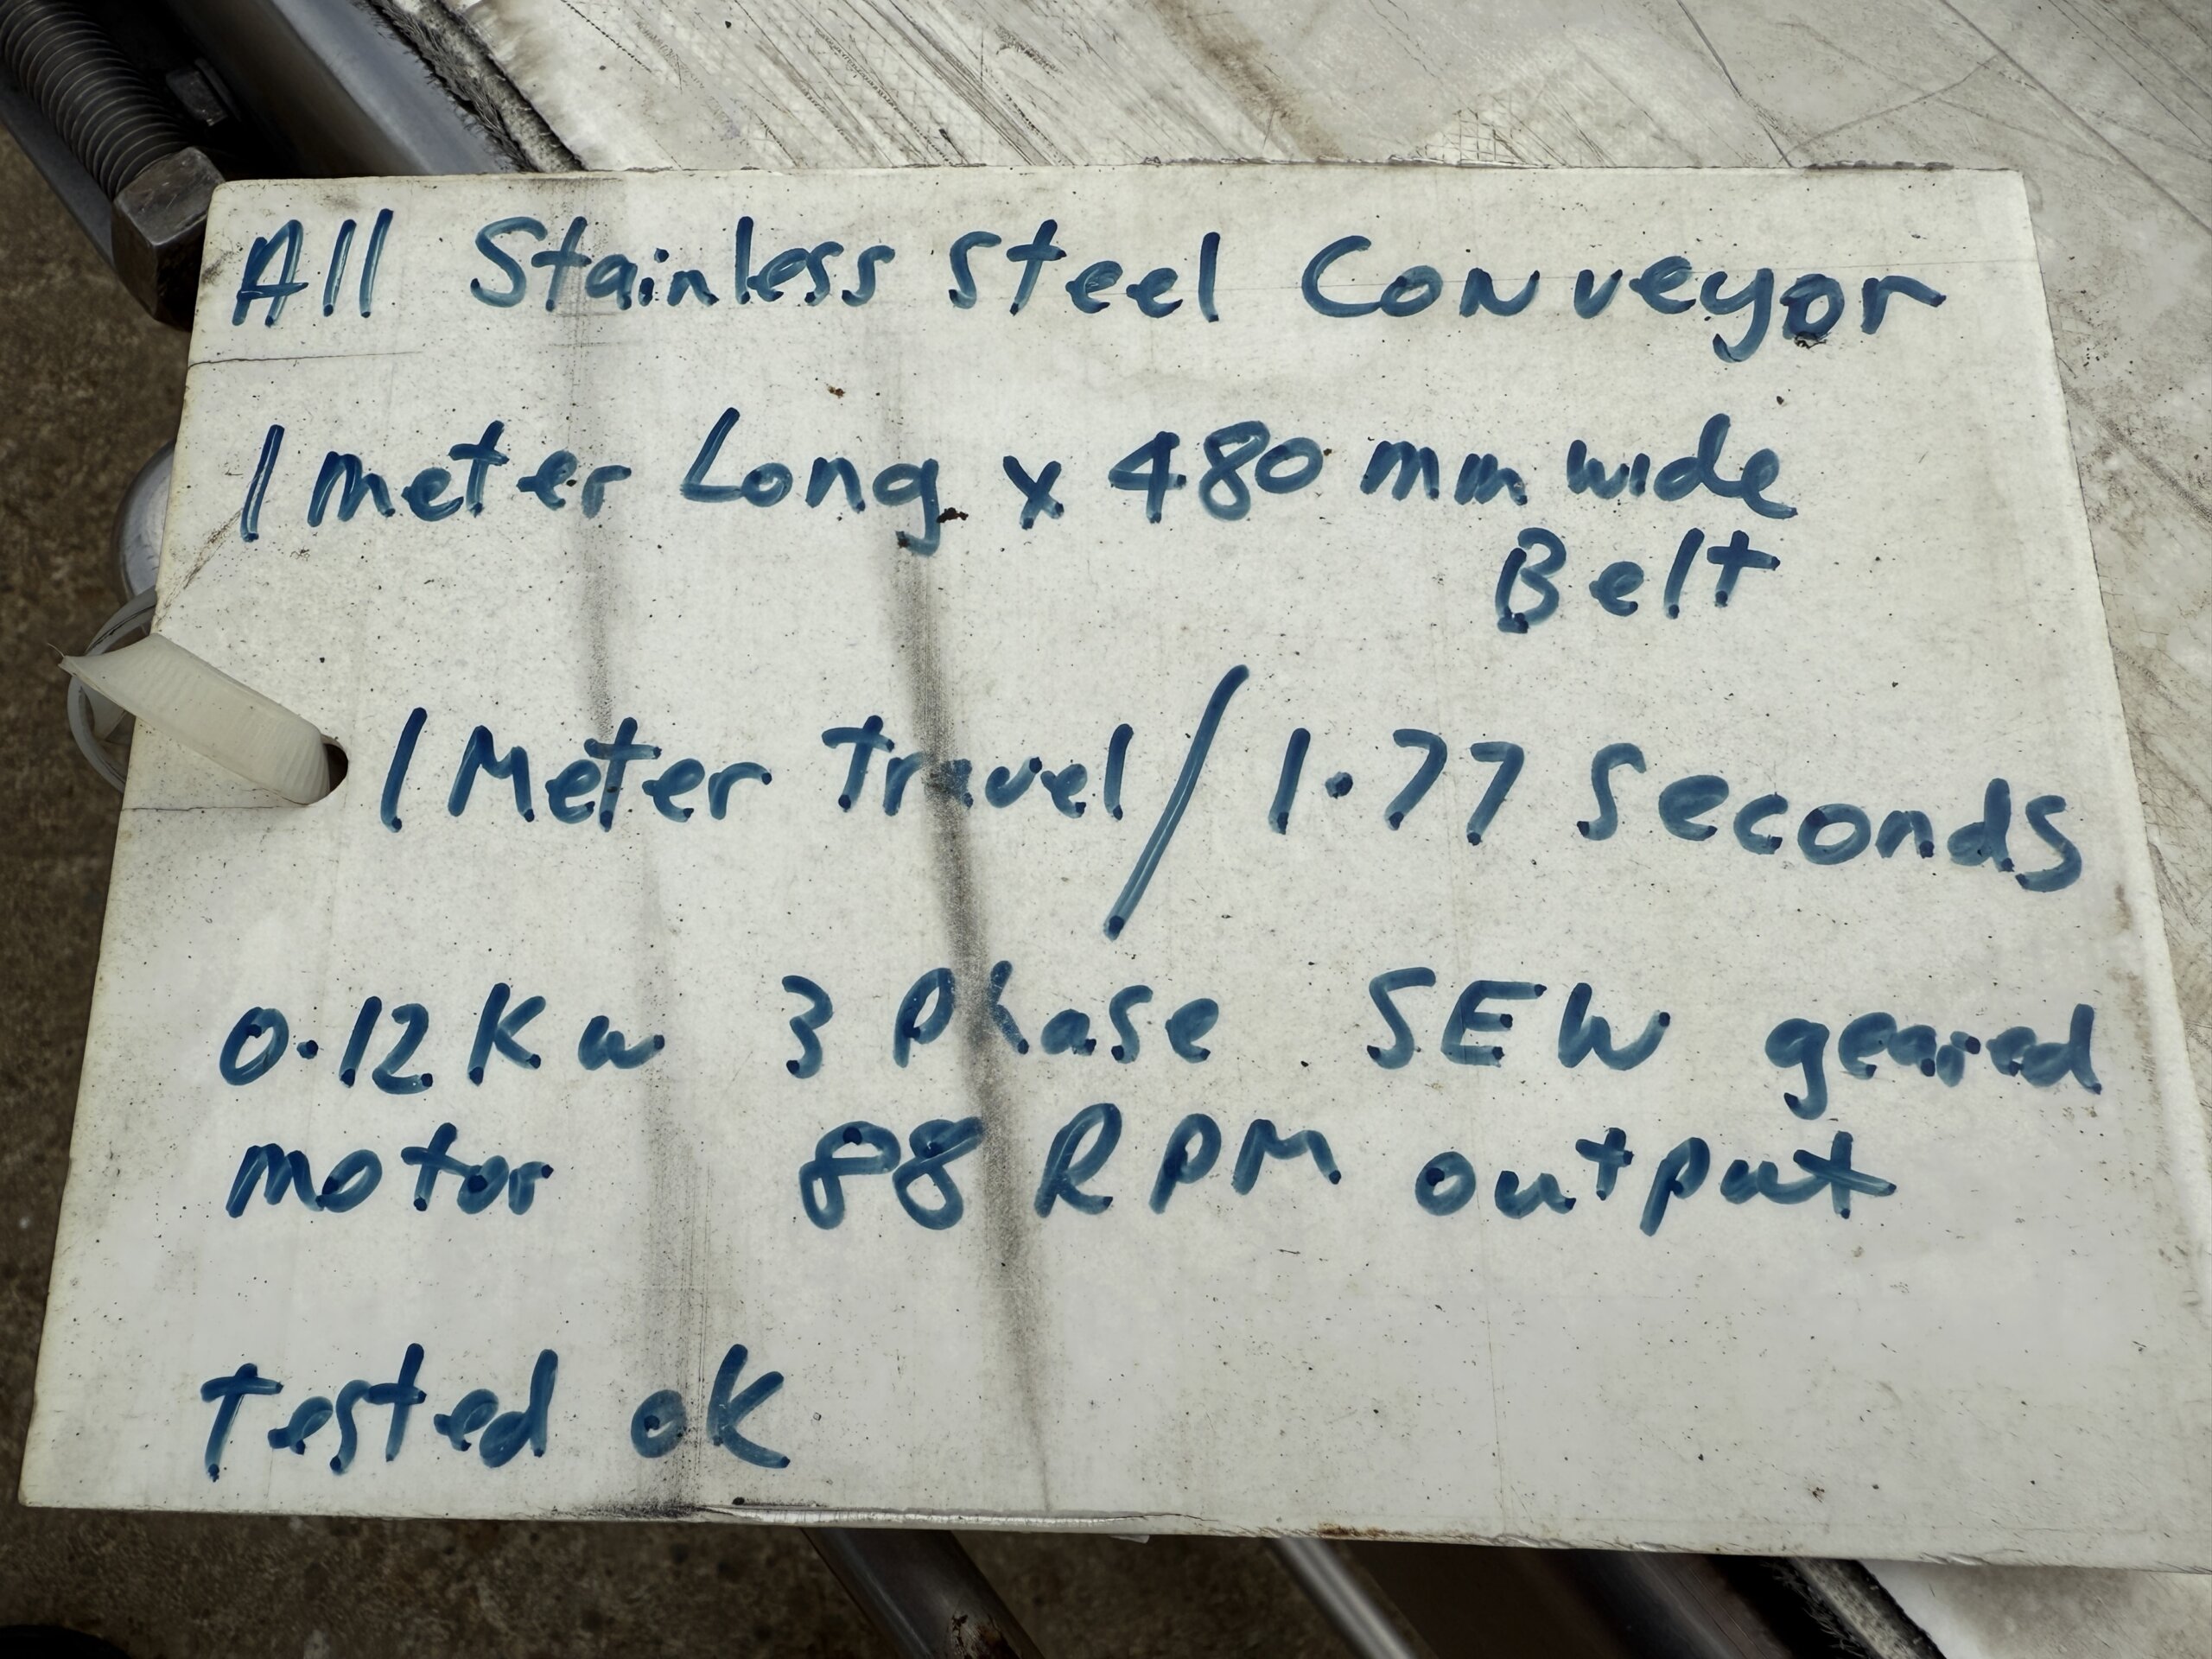 All Stainless Steel Conveyor
1 meter Long x 480 mm wide
Belt
1 Meter travel / 1.77 Seconds
0.12 Kw 3 Phase SEW geared
motor 88 RPM output
Tested ok